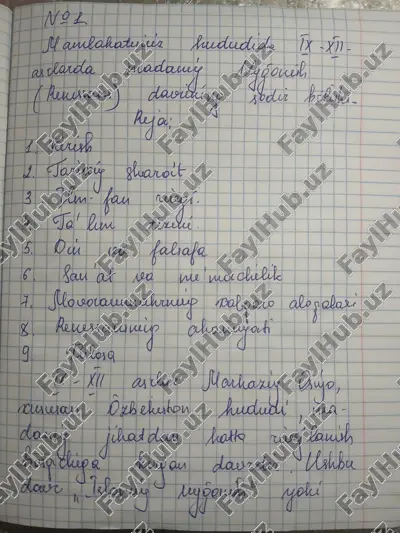 № 1
Mamlakatimiz hududida IX-XII
asrlarda madaniy uyg'onish
(Renessans) davrining sodir bo'lishi.
Reja:
1. Kirish
2. Tarixiy sharoit
3. Ilm-fan rivoji.
4. Ta'lim tizimi.
5. Din va falsafa
6. San'at va me'morchilik
7. Movarounnahrning xalqaro aloqalari
8. Renessansning ahamiyati
9. Xulosa
IX-XII asrlar Markaziy Osiyo,
xususan O'zbekiston hududi, ma-
daniy jihatdan katta rivojlanish
bosqichiga kirgan davrdir. Ushbu
davr "Islomiy uyg'onish" yoki
FaylHub.uz